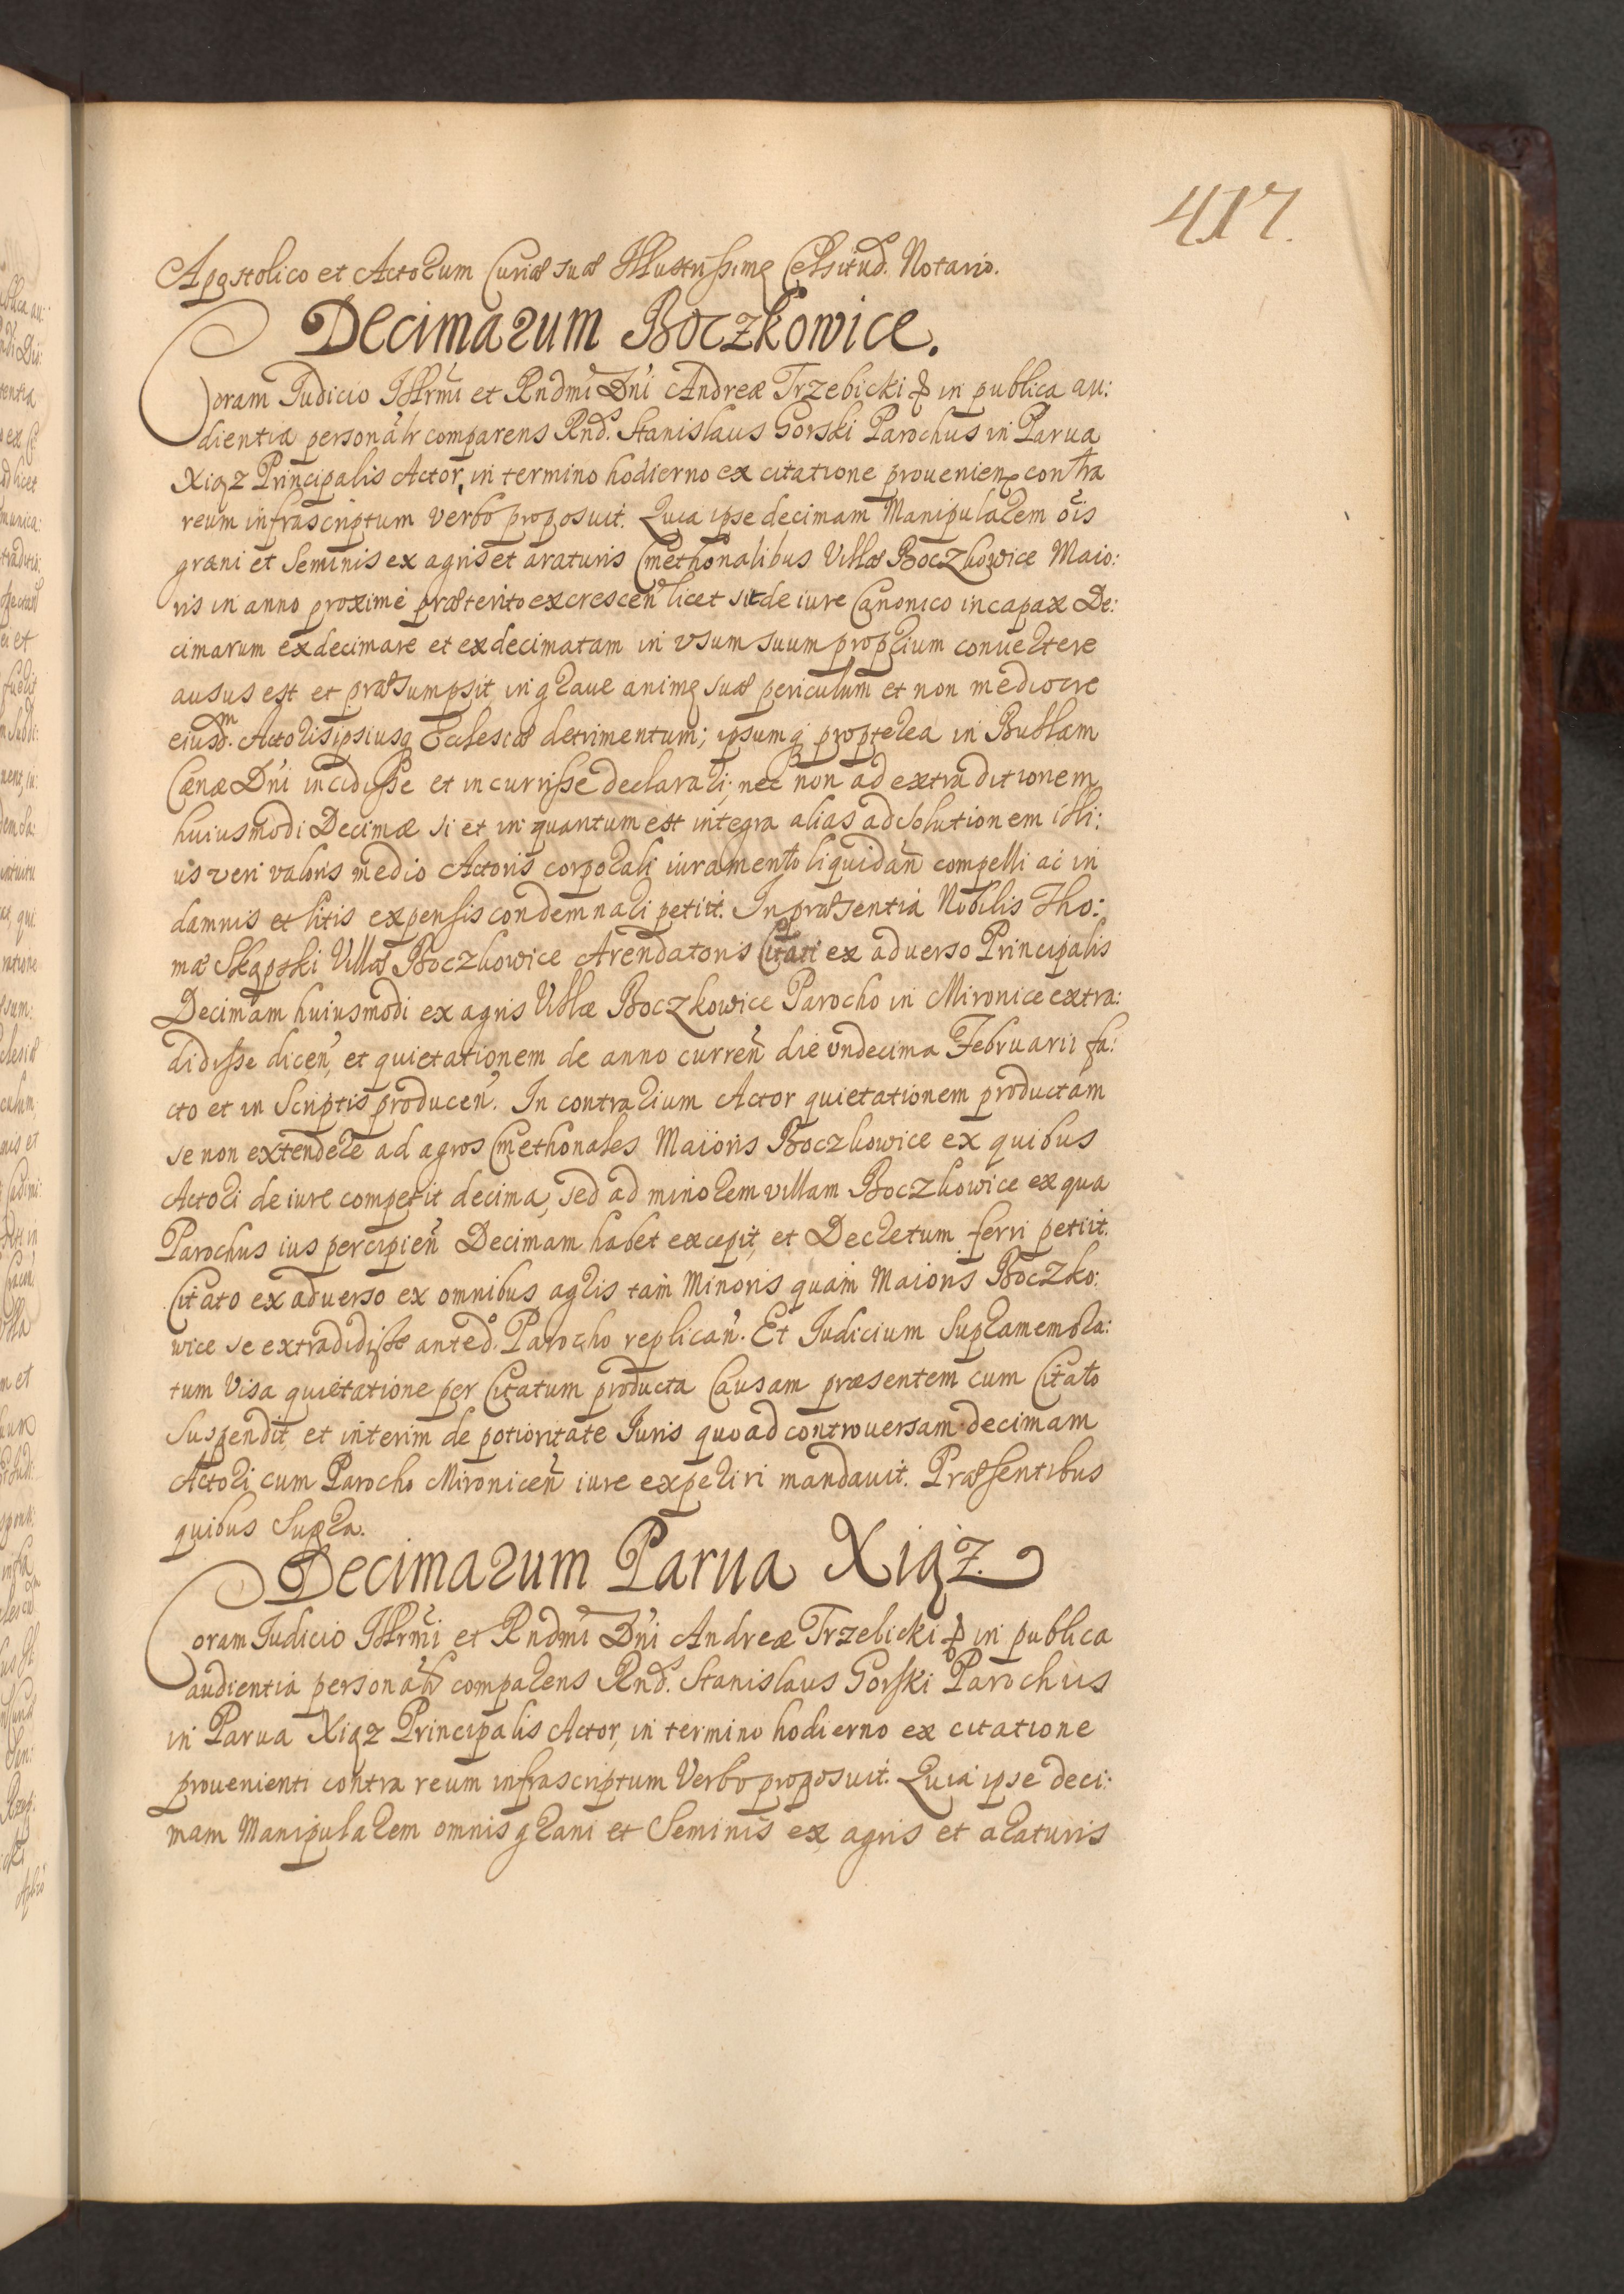 417.
Apostolico et Actorum Curiæ suæ Illustrissimę Celsitud. Notario.
Decimarum Boczkowice.
Coram Iudicio Illrmi et Rndmi Dni Andreæ Trzebicki in publica au:
dientia personalr comparens Rnds. Stanislaus Gorski Parochus in Parua
Xiąz Principalis Actor, in termino hodierno ex citatione prouenien contra
reum infrascriptum verbo proposuit. Quia ipse decimam Manipularem ois
grani et Seminis ex agris et araturis Cmethonalibus Villæ Boczkowice Maio:
ris in anno proximè præterito excrescen licet sit de iure Canonico incapax De:
cimarum exdecimare et exdecimatam in vsum suum proprium conuertere
ausus est et præsumpsit, in graue animę suæ periculum et non mediocre
eiusdm. Actoris ipsiusq Ecclesiæ detrimentum; ipsumq propterea in Bullam
Cænæ Dni incidisse et incurrisse declarari; nec non ad extraditionem
huiusmodi Decimæ si et in quantum est integra alias ad solutionem illi:
us veri valoris medio Actoris corporali iuramento liquidan compelli ac in
damnis et litis expensis condemnari petiit. In præsentia Nobilis Tho:
mæ Skąpski Villæ Boczkowice Arendatoris Citati ex aduerso Principalis
Decimam huiusmodi ex agris Villæ Boczkowice Parocho in Mironice extra:
didisse dicen, et quietationem de anno curren die vndecima Februarii fa:
cto et in Scriptis producen. In contrarium Actor quietationem productam
se non extendere ad agros Cmethonales Maioris Boczkowice ex quibus
Actori de iure competit decima, sed ad minorem villam Boczkowice ex qua
Parochus ius percipien Decimam habet excepit, et Decretum ferri petiit.
Citato ex aduerso ex omnibus agris tam Minoris quam Maioris Boczko:
wice se extradidisse anted. Parocho replican. Et Iudicium Supramemora:
tum Visa quietatione per Citatum producta Causam præsentem cum Citato
Suspendit, et interim de potioritate Iuris quoad controuersam decimam
Actori cum Parocho Mironicen iure experiri mandauit. Præsentibus
quibus Supra.
Decimarum Parua Xiąz.
Coram Iudicio Illrmi et Rndmi Dni Andreæ Trzebicki in publica
audientia personalr comparens Rnds. Stanislaus Gorski Parochus
in Parua Xiąz Principalis Actor, in termino hodierno ex citatione
prouenienti contra reum infrascriptum Verbo proposuit. Quia ipse deci:
mam Manipularem omnis grani et Seminis ex agris et araturis